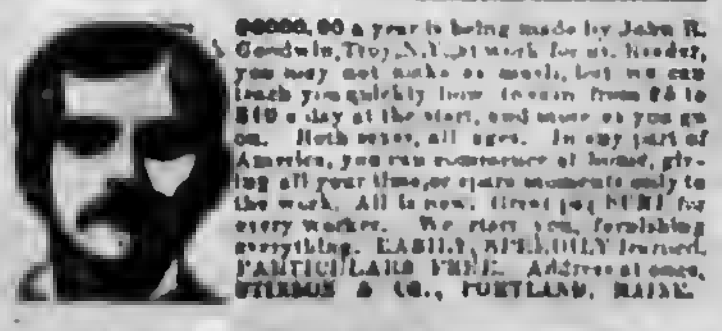 $6000.00 a year is being made by John R.
Goodwin, Troy, N.Y., at work for us. Reader,
you may not make as much, but we can
teach you quickly how to earn from $5 to
$10 a day at the start, and more as you go
on. Both sexes, all ages. In any part of
America, you can commence at home, giv-
ing all your time, or spare moments only to
the work. All is new. Great pay SURE for
every worker. We start you, furnishing
everything. EASILY, SPEEDILY learned.
PARTICULARS FREE. Address at once,
STINSON & CO., PORTLAND, MAINE.